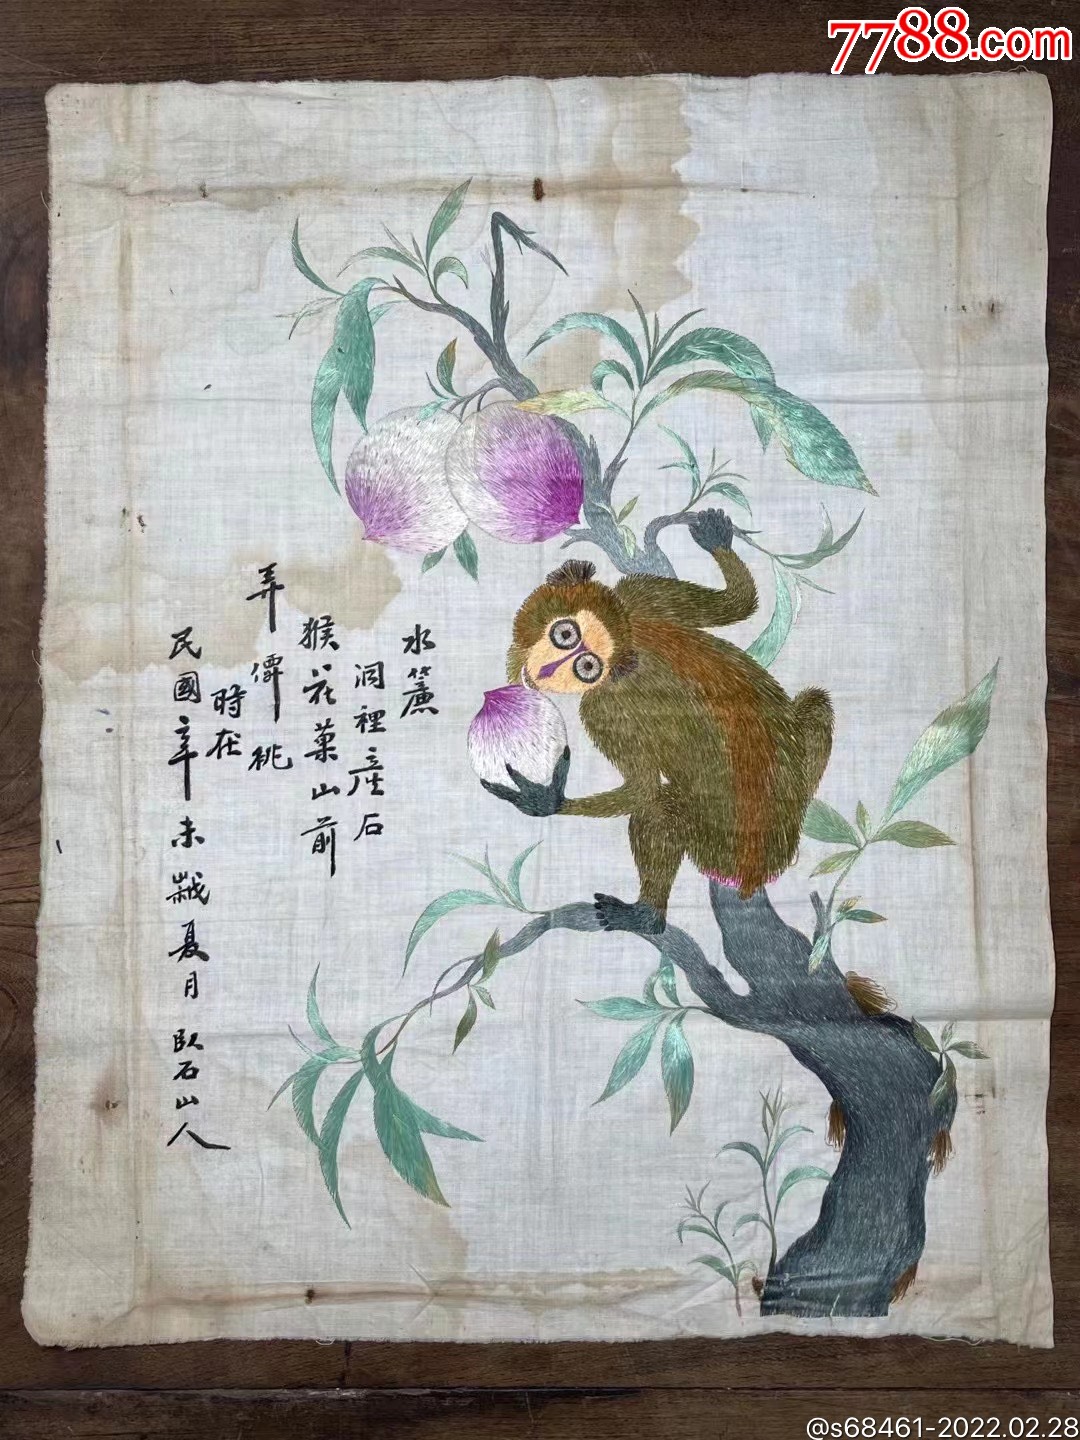 7788.com
水簾
洞裡産石
猴花菓山前
弄僊桃
時在
民國辛未歲夏月臥石山人
@s68461-2022.02.28